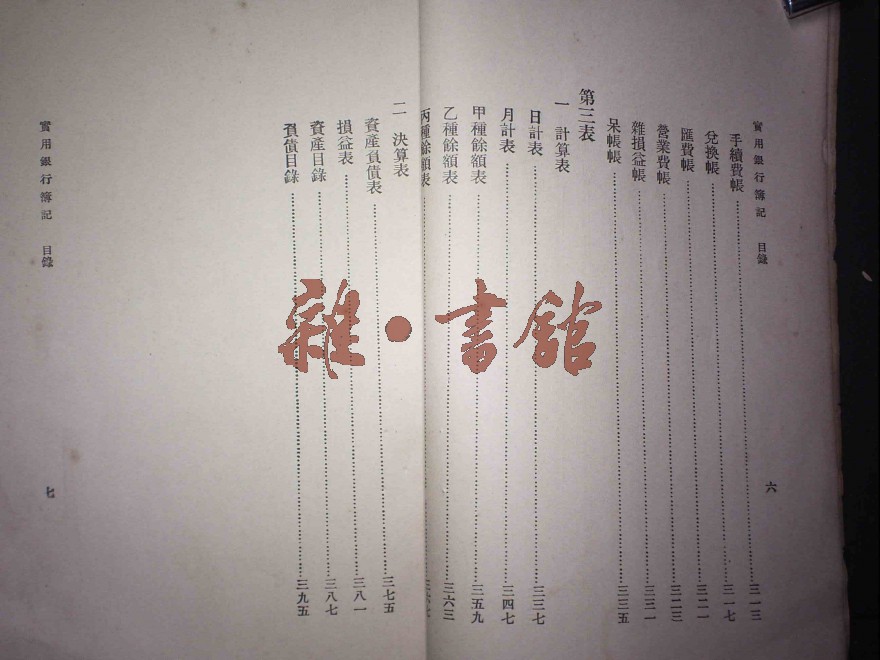 實用銀行簿記 目錄 六
手續費帳……三一三
兌換帳……三一七
匯費帳……三二一
營業費帳……三二三
雜損益帳……三三一
呆帳帳……三三五
第三表
一 計算表
日計表……三三七
月計表……三四七
甲種餘額表……三五九
乙種餘額表……三六三
丙種餘額表……
二 決算表
資產負債表……三七五
損益表……三八一
資產目錄……三八七
負債目錄……三九五
實用銀行簿記 目錄 七
雜·書館